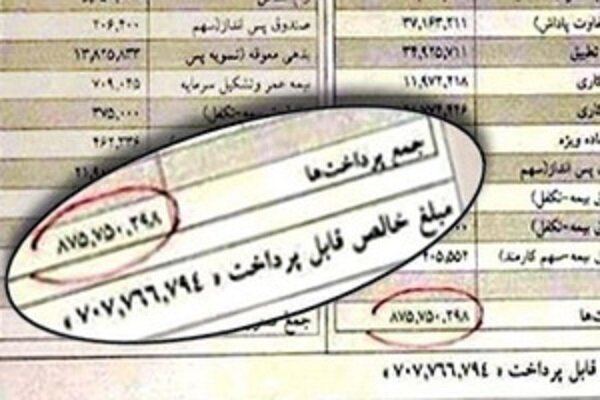 تفاوت پاداش) ۳۷,۱۶۳,۲۱۱
تطبیق ۳۴,۹۲۵,۷۱۱
کاری ۱۱,۹۷۲,۴۱۸
کاری
ماده ویژه
پس انداز(سهم
بیمه-تکفل)
بیمه-تکفل)
بیمه-سهم کارمند)
۸۷۵,۷۵۰,۲۹۸
قابل پرداخت « ۷۰۷,۷۶۶,۷۹۴ »
صندوق پس انداز(سهم ۲۰۶,۴۰۰
بدهی معوقه (تسویه پس ۱۳,۸۲۵,۸۳۳
بیمه عمر وتشکیل سرمایه ۷۰۹,۰۲۵
۳۷۵,۰۰۰
۴۶۲,۳۳۶
جمع پرداخت‌ها ۸۷۵,۷۵۰,۲۹۸
مبلغ خالص قابل پرداخت « ۷۰۷,۷۶۶,۷۹۴ »